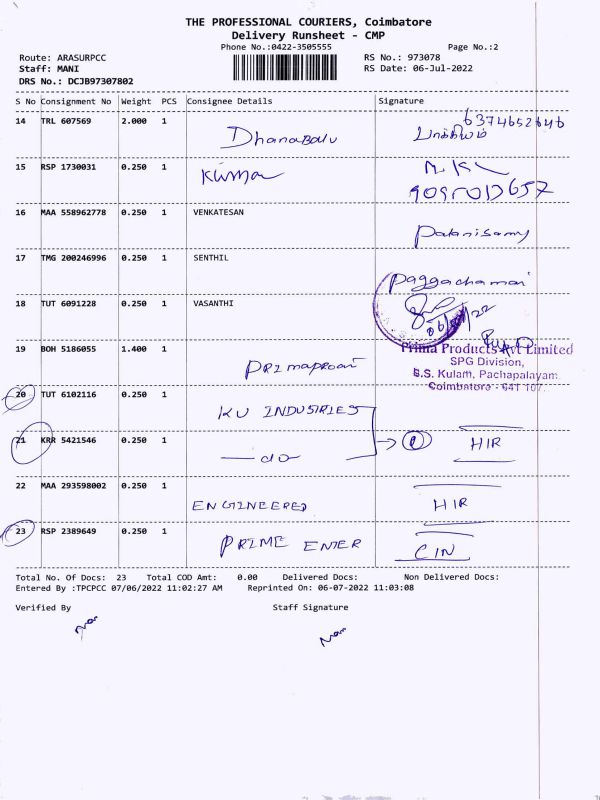 THE PROFESSIONAL COURIERS, Coimbatore
Delivery Runsheet - CMP
Phone No.:0422-3505555
Page No.:2
Route: ARASURPCC
RS No.: 973078
Staff: MANI
RS Date: 06-Jul-2022
DRS No.: DCJB97307802
S No Consignment No Weight PCS Consignee Details Signature
14 TRL 607569 2.000 1 Dhanabalu 6374652646
15 RSP 1730031 0.250 1 Kumar
16 MAA 558962778 0.250 1 VENKATESAN Palanisamy
17 TMG 200246996 0.250 1 SENTHIL
18 TUT 6091228 0.250 1 VASANTHI
19 BOH 5186055 1.400 1
Prima Products Pvt Limited
SPG Division,
S.S. Kulam, Pachapalayam
Coimbatore - 641 107.
20 TUT 6102116 0.250 1 KU INDUSTRIES
21 KRR 5421546 0.250 1 — do — HIR
22 MAA 293598002 0.250 1 ENGINEERED HIR
23 RSP 2389649 0.250 1 PRIME ENTER CIN
Total No. Of Docs: 23 Total COD Amt: 0.00 Delivered Docs: Non Delivered Docs:
Entered By :TPCPCC 07/06/2022 11:02:27 AM Reprinted On: 06-07-2022 11:03:08
Verified By Staff Signature